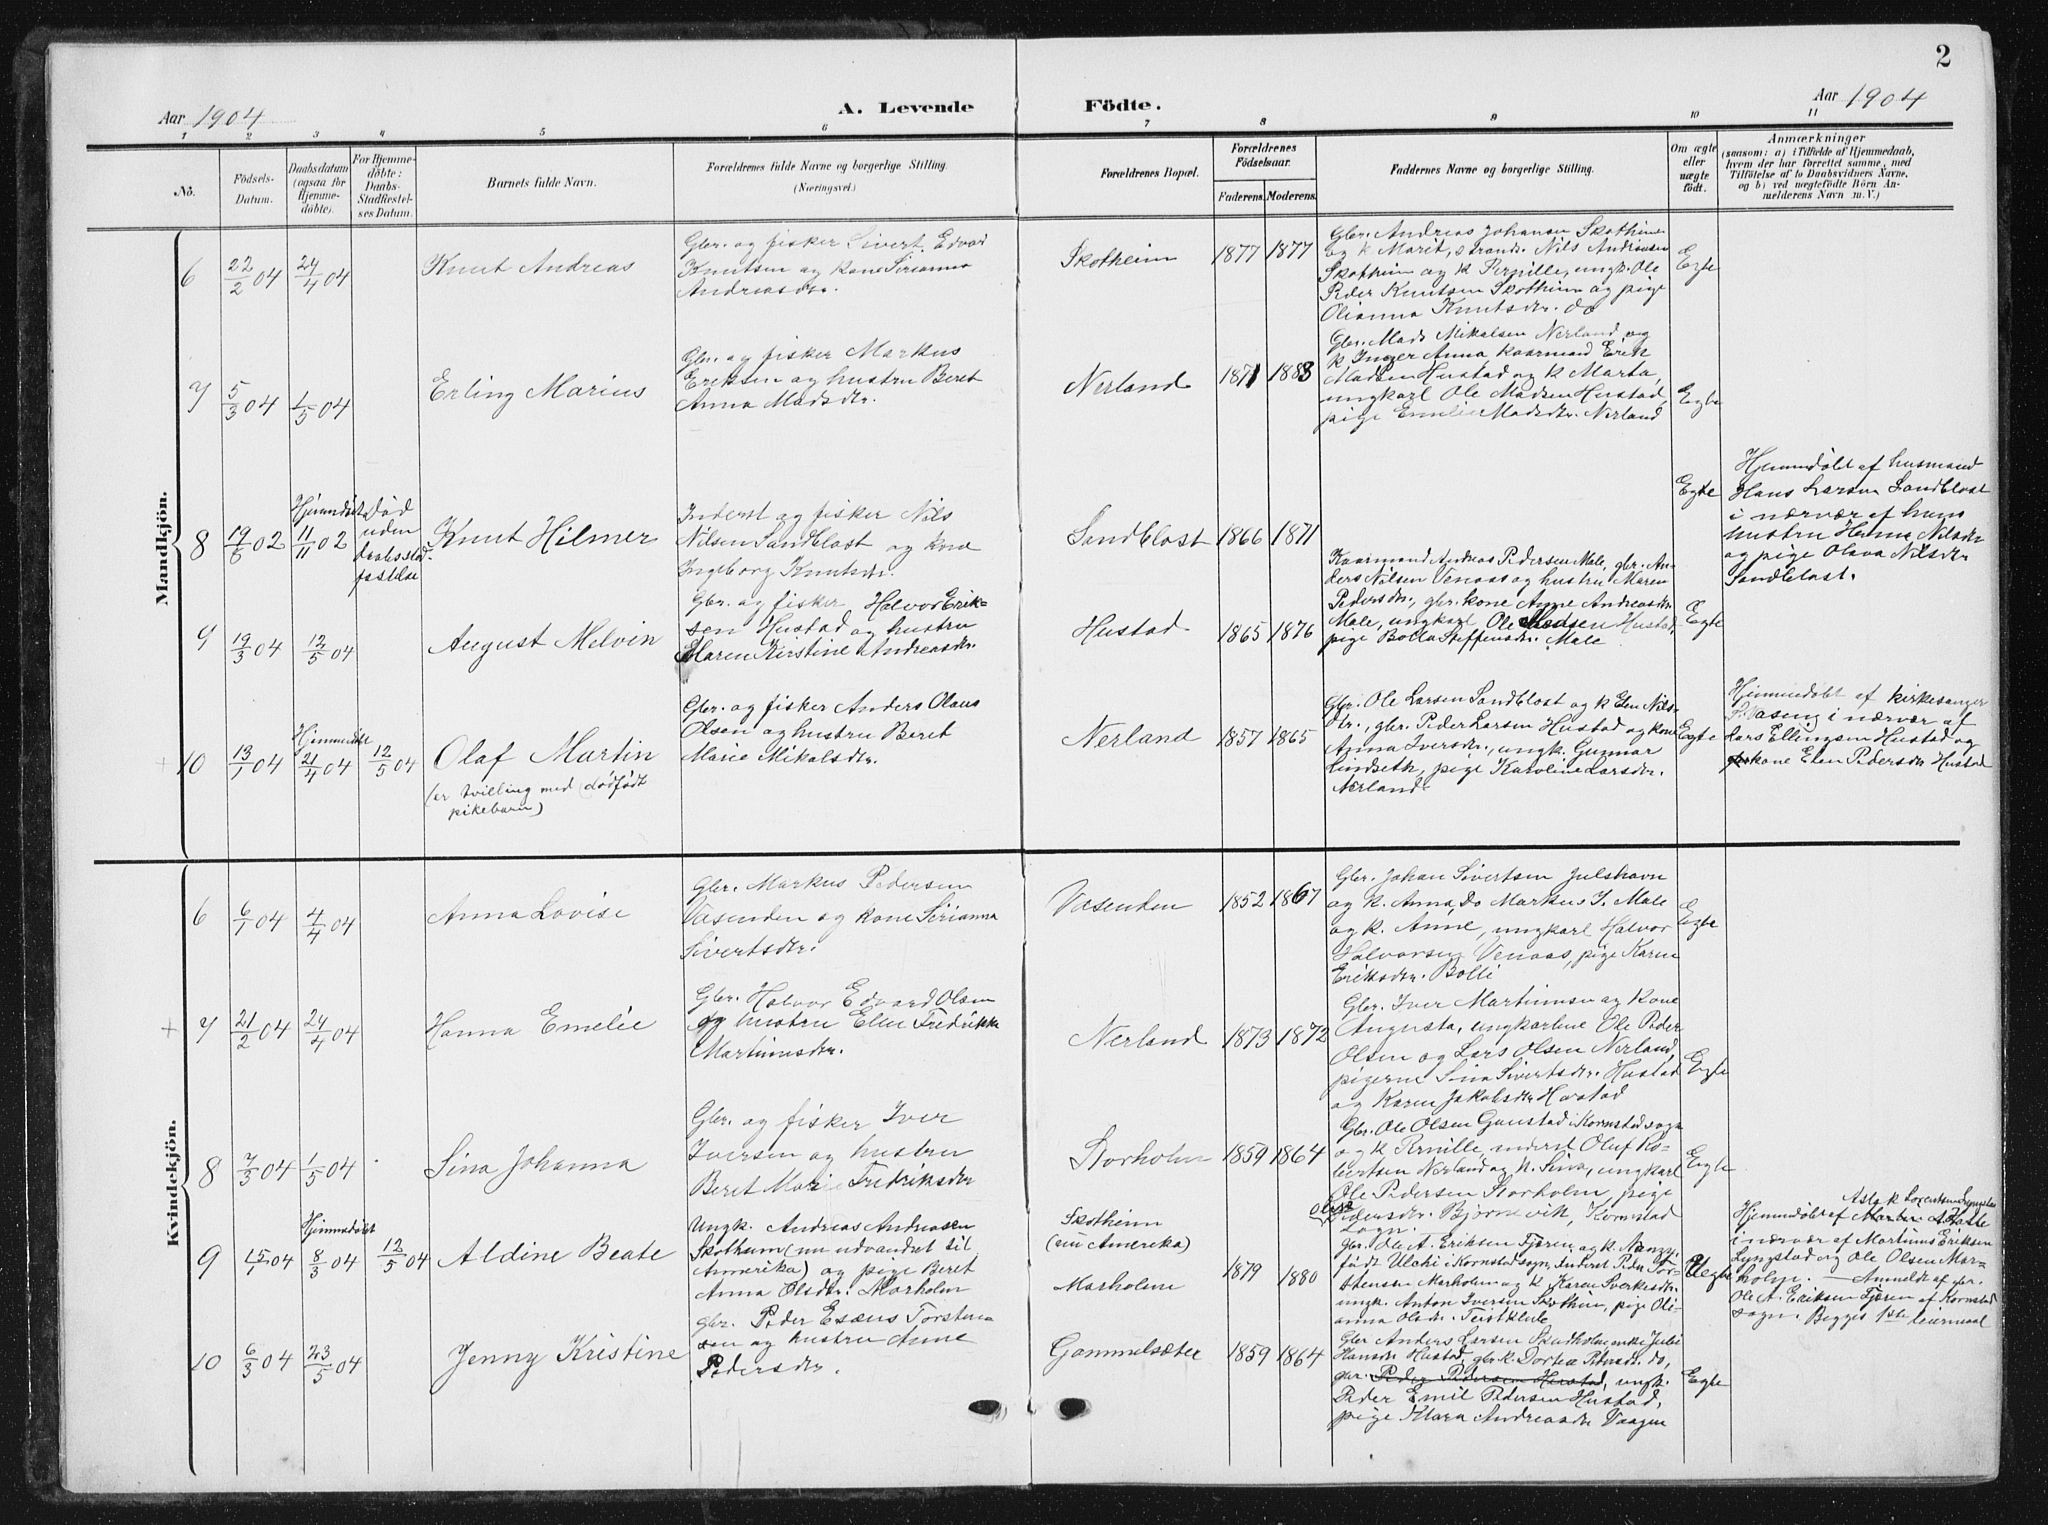 2
Aar 1904
A. Levende
Födte.
Aar 1904
1 2 3 4 5 6 7 8 9 10 11
Nö.
Födsels-
Datum.
Daabsdatum
(ogsaa for
Hjemme-
döbte).
For Hjemme-
döbte:
Daabs-
Stadfæstel-
ses Datum.
Barnets fulde Navn.
Forældrenes fulde Navne og borgerlige Stilling.
(Næringsvei.)
Forældrenes Bopæl.
Forældrenes
Födselsaar.
Faderens.
Moderens.
Faddernes Navne og borgerlige Stilling.
Om ægte
eller
uægte
födt.
Anmærkninger
(saasom: a) i Tilfælde af Hjemmedaab,
hvem der har forrettet samme, med
Tilföielse af to Daabsvidners Navne,
og b) ved uægtefödte Börn An-
melderens Navn m. V.)
Mandkjön.
6
22/2 04
24/4 04
Knut Andreas
Gbr. og fisker Sivert Edvard
Knutsen og kone Sirianna
Andreasdtr.
Skotheim
1877
1877
Gbr. Andreas Johansen Skotheim
og k Marit, Nils Andreasen
Skotheim og k Pernille, ungk. Ole
Peder Knutsen Skotheim og pige
Olianna Knutsdtr. do
Egte
7
5/3 04
1/5 04
Erling Marius
Gbr. og fisker Markus
Eriksen og hustru Beret
Anna Madsdtr.
Nerland
1871
1883
Gbr. Mads Mikalsen Nerland og
k Inger Anna, kaarmand Erik
Madsen Hustad og k Marta,
ungkarl Ole Madsen Hustad,
pige Emelie Madsdtr. Nerland
Egte
8
19/6 02
Hjemmedöbt
11/11 02
Död
uden
daabsstad-
festelse
Knut Hilmer
Inderst og fisker Nils
Nilsen Sandblost og kone
Ingeborg Knutsdtr.
Sandblost
1866
1871
Egte
Hjemmedöbt af husmand
Hans Larsen Sandblost
i nærvær af hans
hustru Hanna Nilsdtr
og pige Olava Nilsdtr.
Sandblost.
9
19/3 04
12/5 04
August Melvin
Gbr. og fisker Halvor Erik-
sen Hustad og hustru
Maren Kirstine Andreasdtr.
Hustad
1865
1876
Kaarmand Andreas Pedersen Male, gbr. An-
ders Nilsen Venaas og hustru Maren
Pedersdtr., gbr. kone Anne Andreasdtr.
Male, ungkarl Ole Madsen Hustad,
pige Bolla Steffensdtr. Male
Egte
+ 10
13/1 04
Hjemmedöbt
21/4 04
12/5 04
Olaf Martin
(er tvilling med dödfödt
pikebarn)
Gbr. og fisker Anders Olaus
Olsen og hustru Beret
Marie Mikalsdtr.
Nerland
1857
1865
Gbr. Ole Larsen Sandblost og k Elen Nils-
dtr., gbr. Peder Larsen Hustad og kone
Anna Iversdtr., ungk. Gunnar
Lindseth, pige Karoline Larsdtr.
Nerland
Egte
Hjemmedöbt af kirkesanger
P. Vaseng i nærvær af
Lars Ellingsen Hustad og
kone Elen Pedersdtr Hustad
Kvindekjön.
6
6/1 04
4/4 04
Anna Lovise
Gbr. Markus Pedersen
Vasenden og kone Sirianna
Sivertsdtr.
Vasenden
1852
1867
Gbr. Johan Sivertsen Julshavn
og k. Anna, Do Markus I. Male
og k. Anne, ungkarl Halvor
Halvorsen Venaas, pige Karen
Eriksdtr. Bolli
Egte
+ 7
21/2 04
24/4 04
Hanna Emelie
Gbr. Halvor Edvard Olsen
og hustru Ellen Fredrikke
Martinusdtr.
Nerland
1873
1872
Gbr. Iver Martinusen og kone
Augusta, ungkarlene Ole Peder
Olsen og Lars Olsen Nerland,
pigerne Sina Sivertsdtr. Hustad
og Karen Jakobsdtr Hustad
Egte
8
7/3 04
1/5 04
Sina Johanna
Gbr. og fisker Iver
Iversen og hustru
Beret Marie Fredriksdtr
Storholm
1859
1864
Gbr. Ole Olsen Gaustad i Kornstad sogn
og k Pernille, inderst Oluf Ro-
bertsen Nerland og k. Sina, ungkarl
Ole Pedersen Storholm, pige
Pedersdtr. Björnevik, Kornstad
sogn.
Egte
9
15/1 04
Hjemmedöbt
8/3 04
12/5 04
Aldine Beate
Ungk. Andreas Andreasen
Skotheim (nu udvandret til
Amerika) og pige Beret
Anna Olsdtr. Marholm
Skotheim
(nu Amerika)
Marholm
1879
1880
gbr. Ole A. Eriksen Fjören og k. Nanzy,
födt Ulchi i Kornstad sogn, inderst Peder Tor-
stensen Marholm og k Karen Sverkesdtr.
ungk. Anton Iversen Skotheim, pige Oli-
anna Olsdtr. Teistklub
Uegte
Aslak Lorentsen Lyngstad
Hjemmedöbt af
i nærvær af Martinus Eriksen
Lyngstad og Ole Olsen Mar-
holm. — Anmeldt af gbr.
Ole A. Eriksen Fjören af Kornstad
sogn. Begges 1ste leiermaal
10
6/3 04
23/5 04
Jenny Kristine
gbr. Peder Esæus Torsten-
sen og hustru Anne
Pedersdtr.
Gammelsæter
1859
1864
Gbr Anders Larsen Skarholm, enke Julie
Hansdtr Hustad, gbr. k. Dortea Pedersdtr. do,
gbr. Peder Pedersen Hustad, ungk.
Peder Emil Pedersen Hustad,
pige Klara Andreasdtr Vaagen
Egte